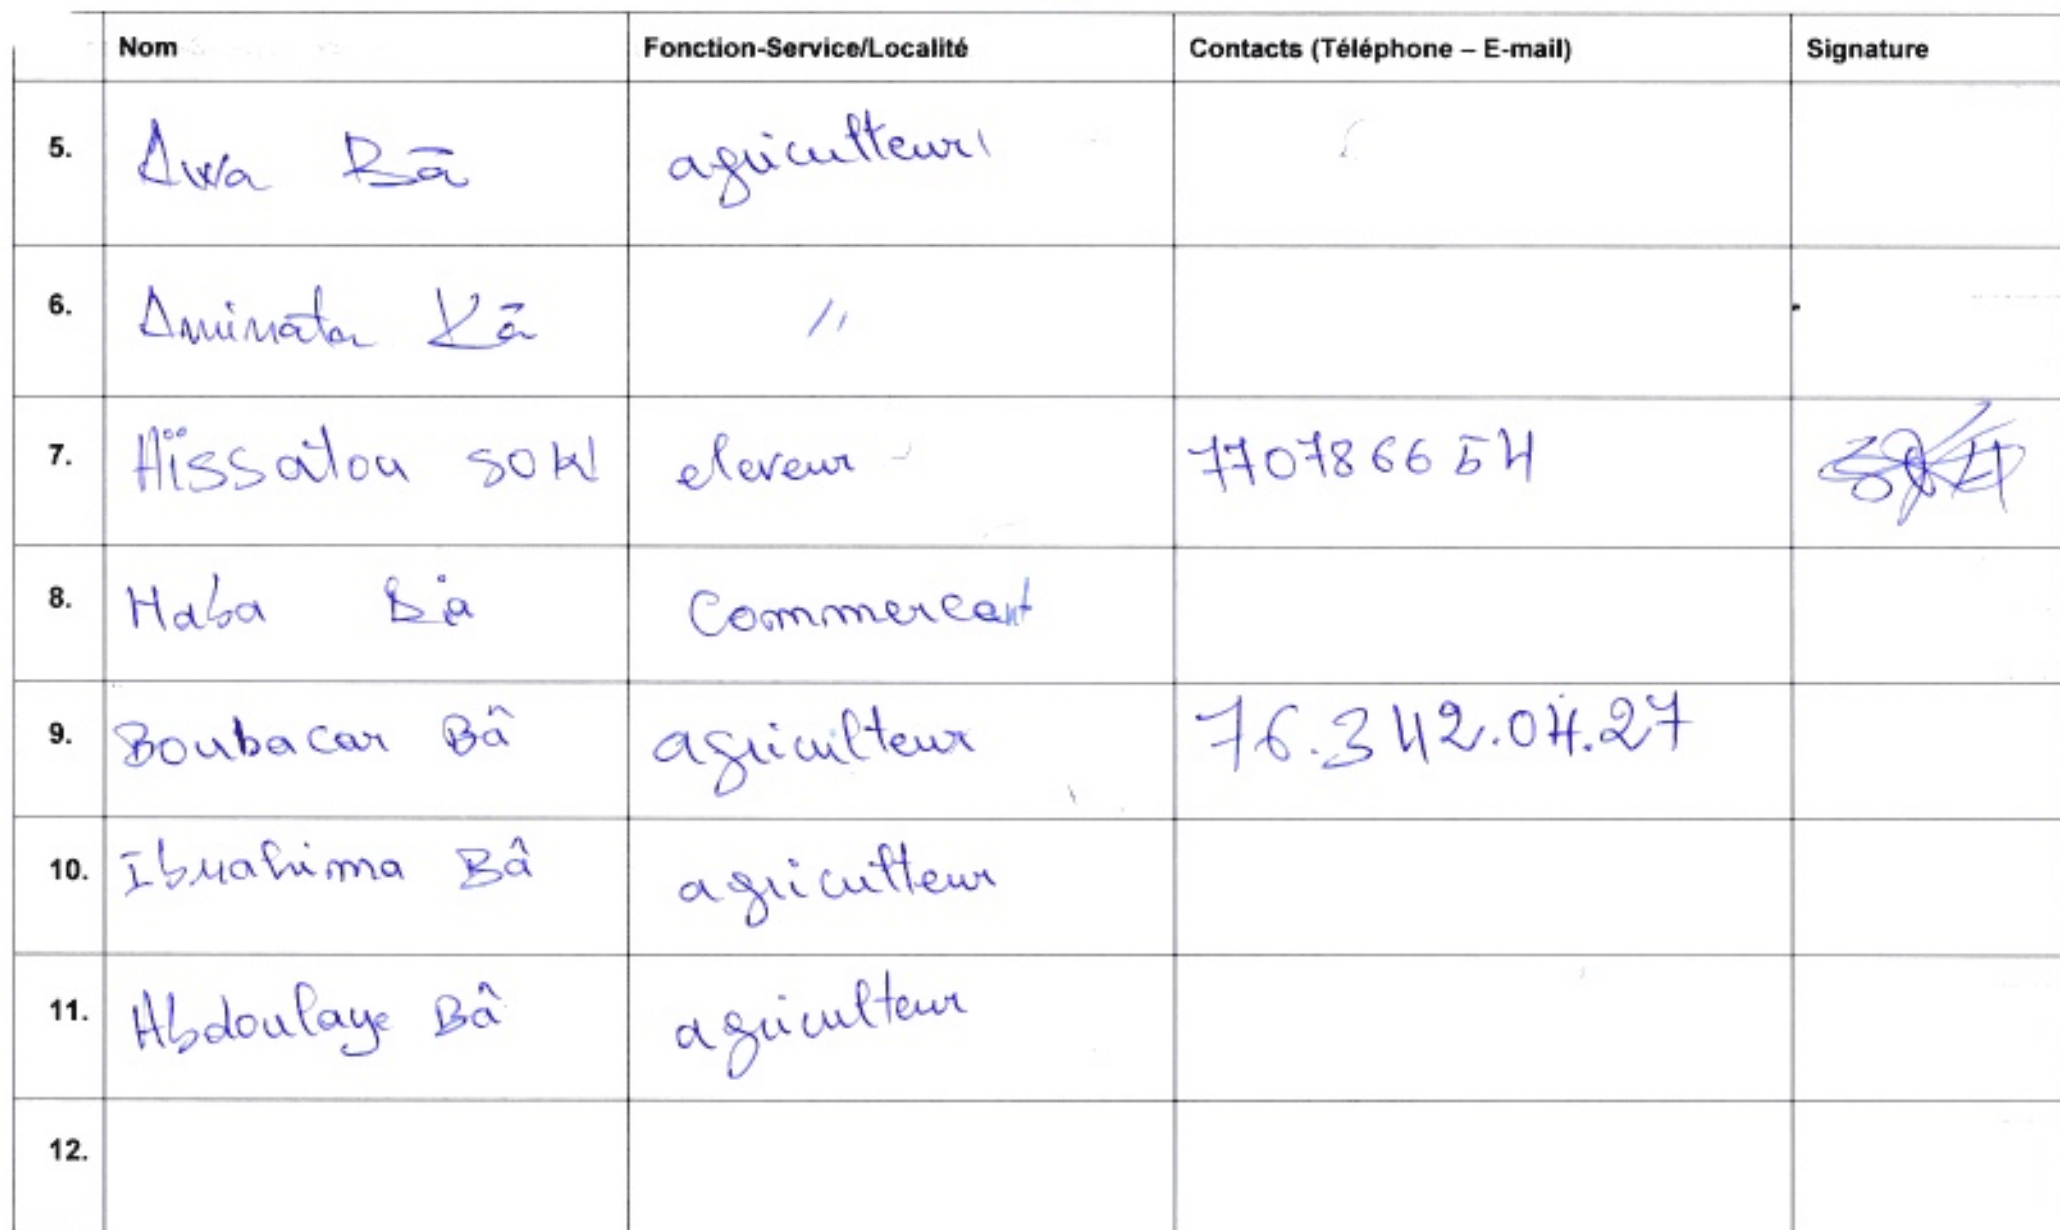 Nom Fonction-Service/Localité Contacts (Téléphone – E-mail) Signature
5. Awa Bā agriculteur
6. Aminata Kā //
7. Aïssatou SOW eleveur 770786654
8. Haba Bà Commercant
9. Boubacar Bâ agriculteur 76.342.04.27
10. Ibrahima Bâ agriculteur
11. Abdoulaye Bâ agriculteur
12.